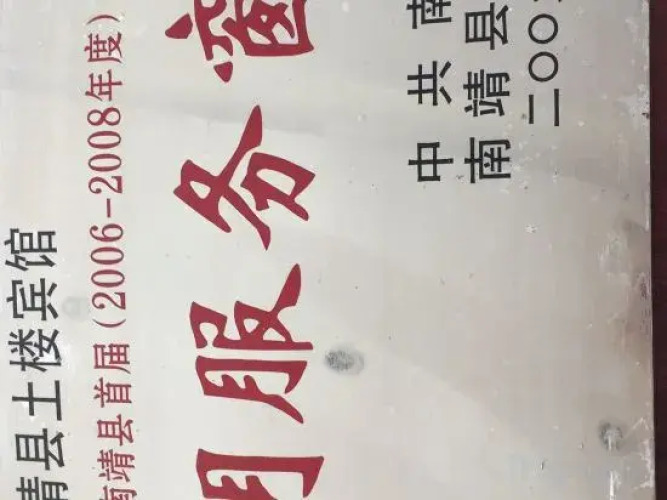 靖县土楼宾馆
南靖县首届(2006-2008年度)
明服务窗
中共南
南靖县
二〇〇